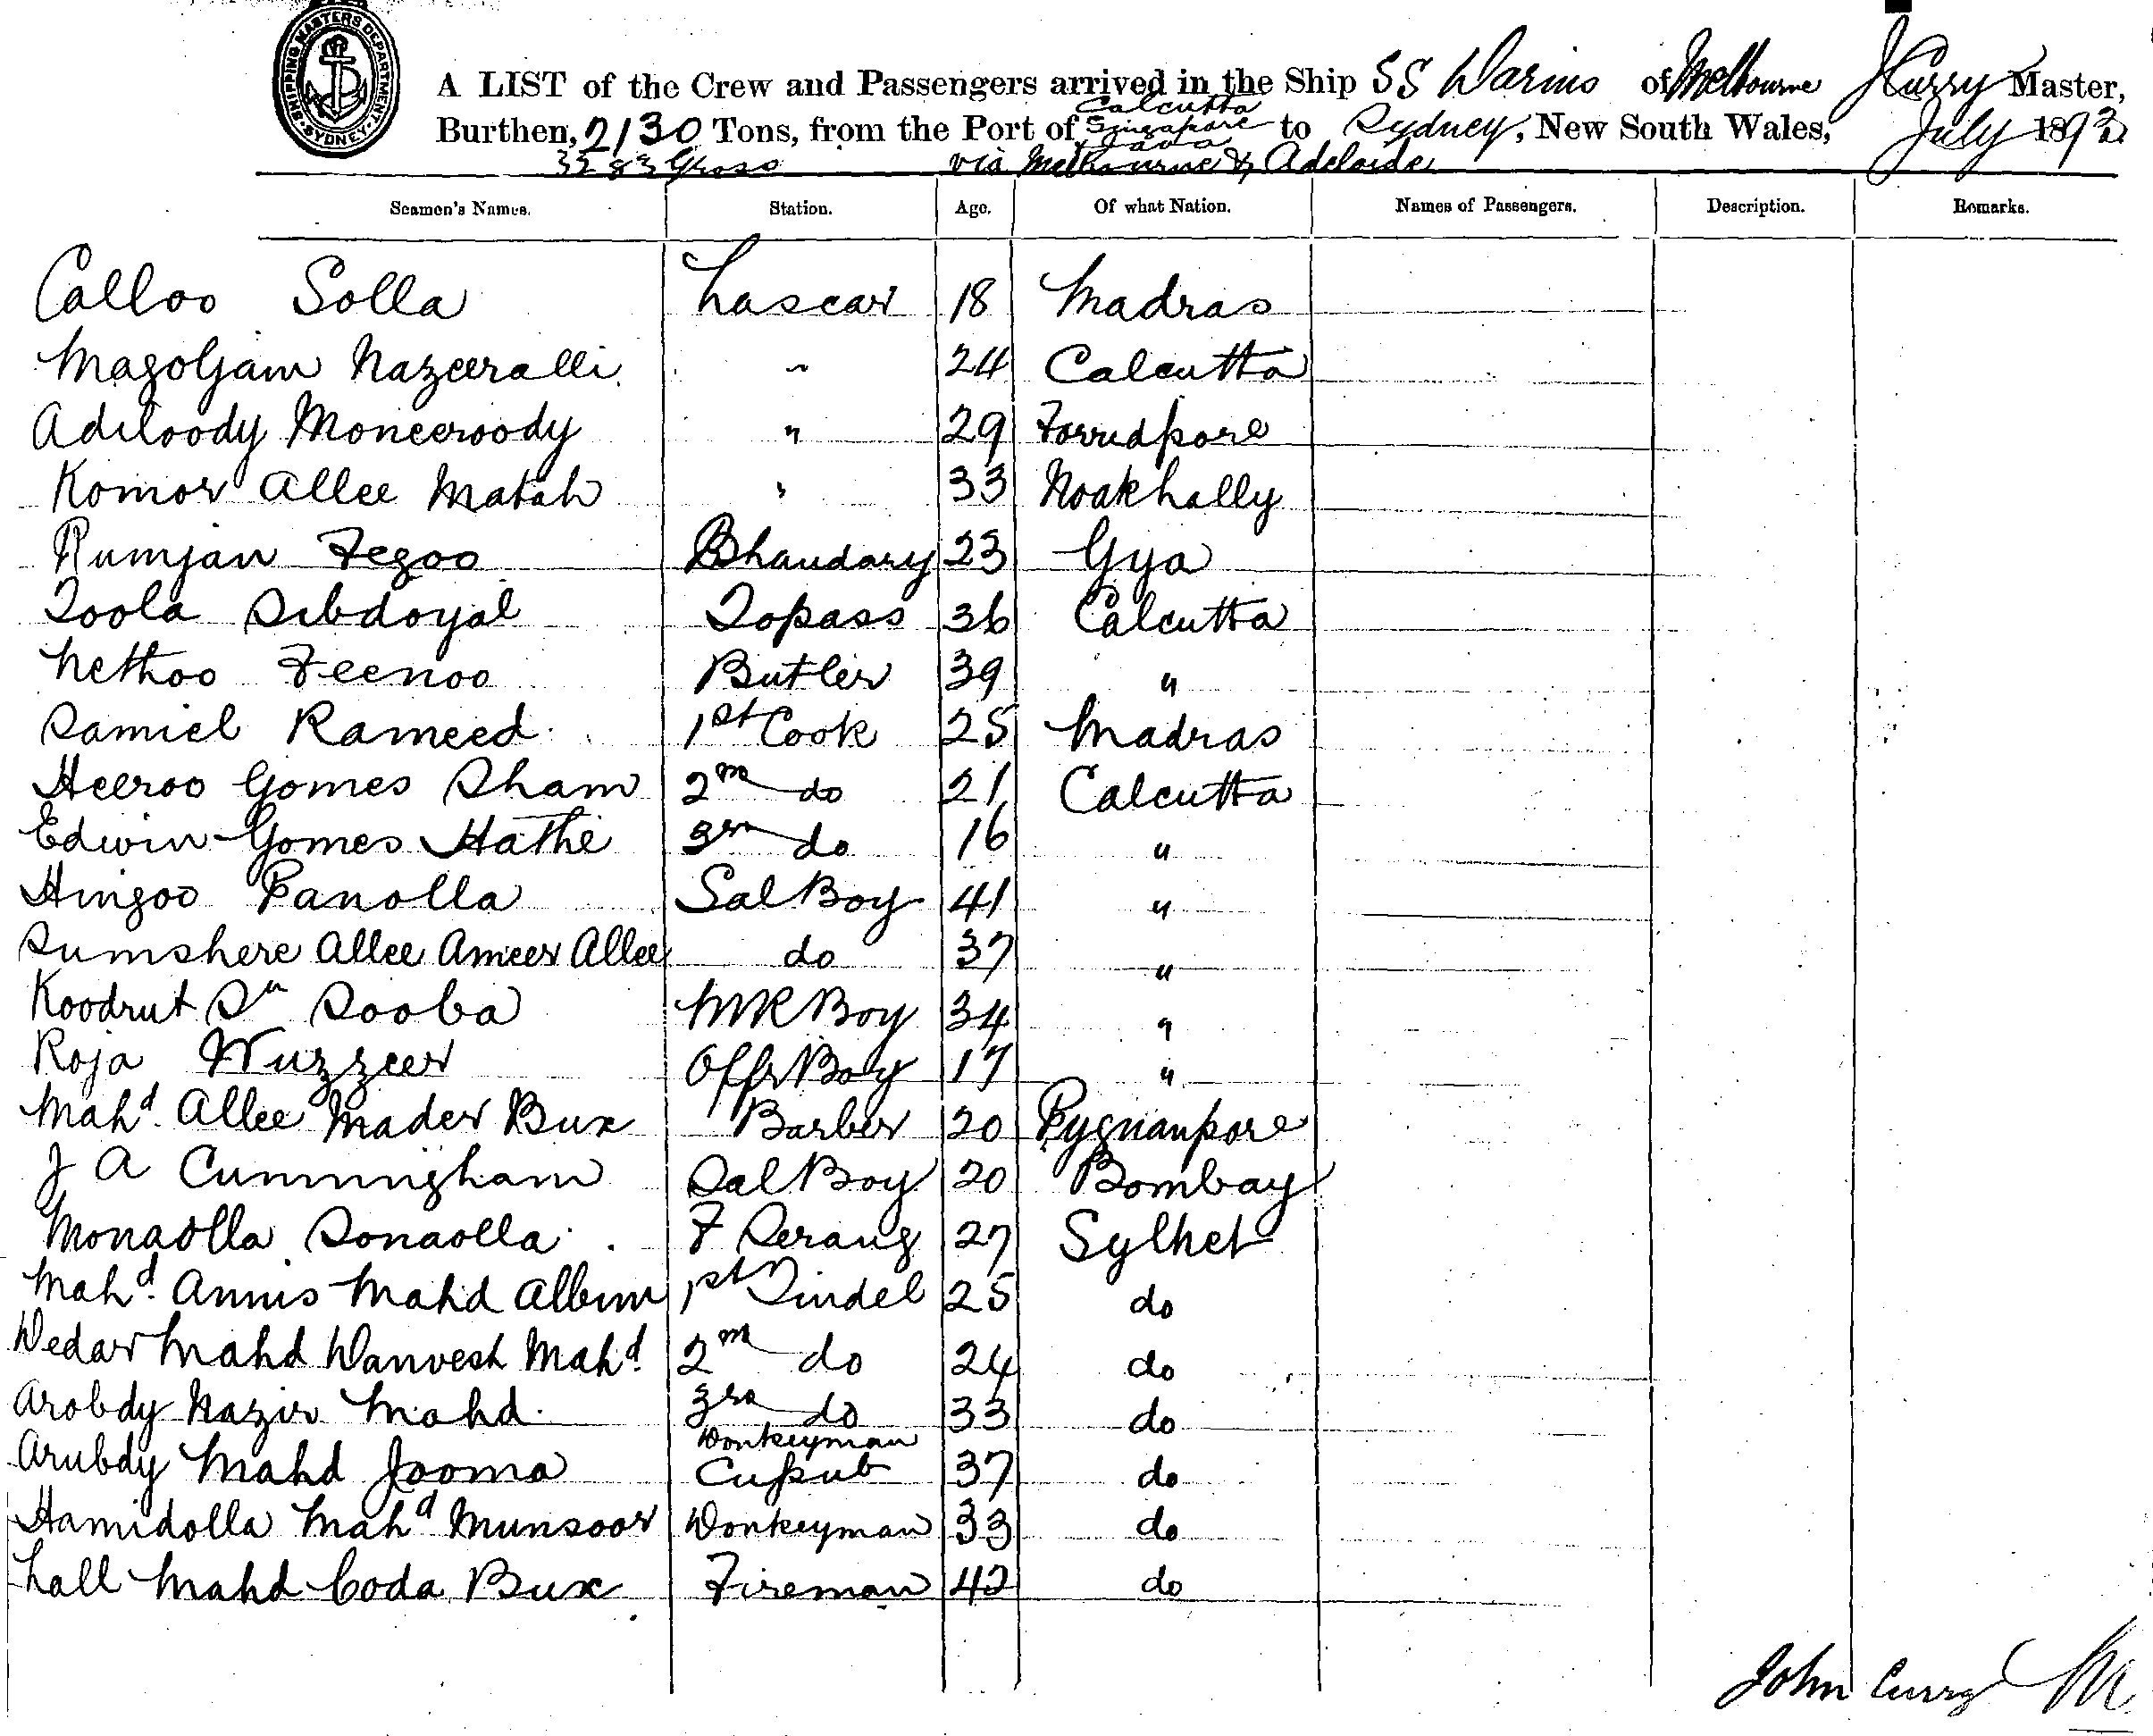 SHIPPING MASTERS DEPARTMENT SYDNEY
A LIST of the Crew and Passengers arrived in the Ship SS Darius of Melbourne J Curry Master,
Burthen, 2130 Tons, from the Port of Calcutta Singapore & Java to Sydney, New South Wales, July 1892
3283 Gross via Melbourne & Adelaide
Seamen's Names. Station. Age. Of what Nation. Names of Passengers. Description. Remarks.
Calloo Solla Lascar 18 Madras
Magoljam Nazeeralli " 24 Calcutta
Adiloody Moneeroody " 29 Forrudpore
Komor Allee Matah " 33 Noakhally
Rumjan Fegoo Bhandary 23 Gya
Toola Sibdoyal Topass 36 Calcutta
Nethoo Feenoo Butler 39 "
Samiel Rameed 1st Cook 25 Madras
Heeroo Gomes Sham 2nd do 21 Calcutta
Edwin Gomes Hathe 3rd do 16 "
Hingoo Panolla Sal Boy 41 "
Sumshere Allee Ameer Allee do 37 "
Koodrut Sn Sooba MR Boy 34 "
Roja Wuzzeer Offr Boy 17 "
Mahd. Allee Mader Bux Barber 20
J A Cunningham Sal Boy 20 Bombay
Monaolla Sonaolla F Serang 27 Sylhet
Mahd. Annis Mahd Allum 1st Tindel 25 do
Dedar Mahd Danvesh Mahd. 2nd do 24 do
Arobdy Nazir Mahd. 3rd do 33 do
Arubdy Mahd Jooma Donkeyman Cussub 37 do
Hamidolla Mahd Munsoor Donkeyman 33 do
Lall Mahd Coda Bux Fireman 42 do
John Curry